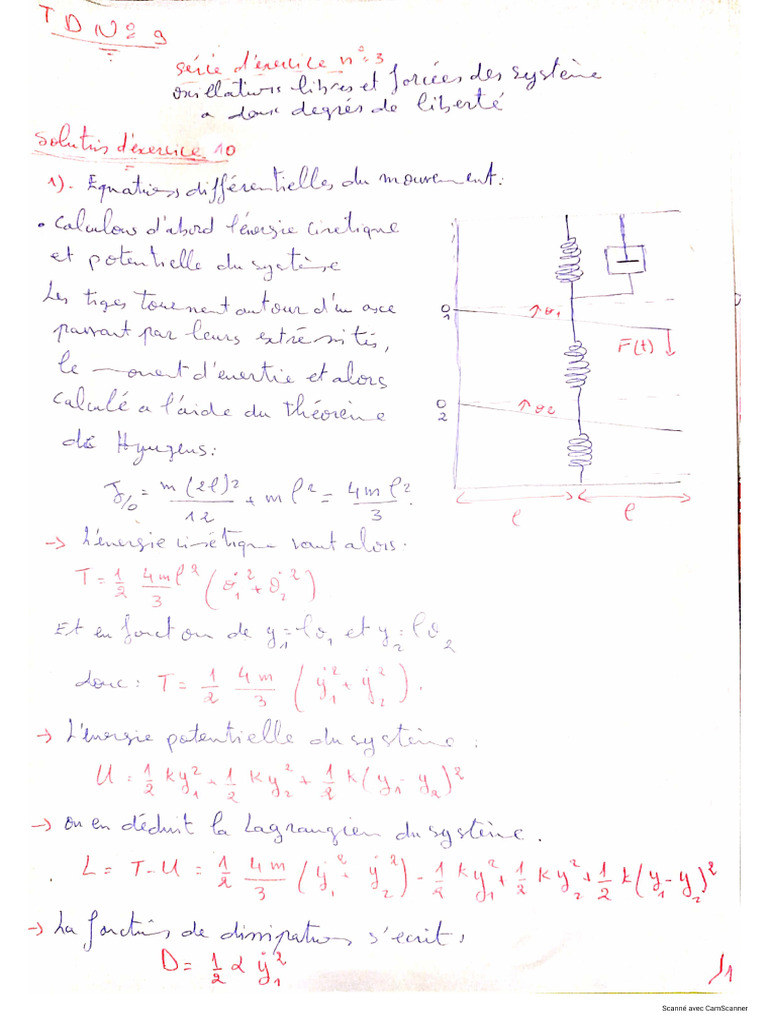 TD N° 9
série d'exercice n° 3
oscillations libres et forcées des système
a deux degrés de liberté
Solutions d'exercice 10
1). Equations différentielles du mouvement:
• Calculons d'abord l'énergie cinétique
et potentielle du système
Les tiges tournent autour d'un axe
passant par leurs extrémités,
le moment d'inertie et alors
calculé a l'aide du théorème
de Hyugens:
J/0 = m(2l)²/12 + ml² = 4ml²/3.
→ L'énergie cinétique vaut alors:
T = 1/2 4ml²/3 (θ̇₁² + θ̇₂²)
Et en fonction de y₁ = lθ₁ et y₂ = lθ₂
donc: T = 1/2 4m/3 (ẏ₁² + ẏ₂²).
→ L'énergie potentielle du système:
U = 1/2 ky₁² + 1/2 ky₂² + 1/2 k(y₁ - y₂)²
→ on en déduit la Lagrangien du système.
L = T - U = 1/2 4m/3 (ẏ₁² + ẏ₂²) - 1/2 ky₁² + 1/2 ky₂² + 1/2 k(y₁ - y₂)²
→ La fonctions de dissipations s'ecrit:
D = 1/2 α ẏ₁²
0₁
↑θ1
F(t)
0₂
↑θ2
l
l
1
Scanné avec CamScanner